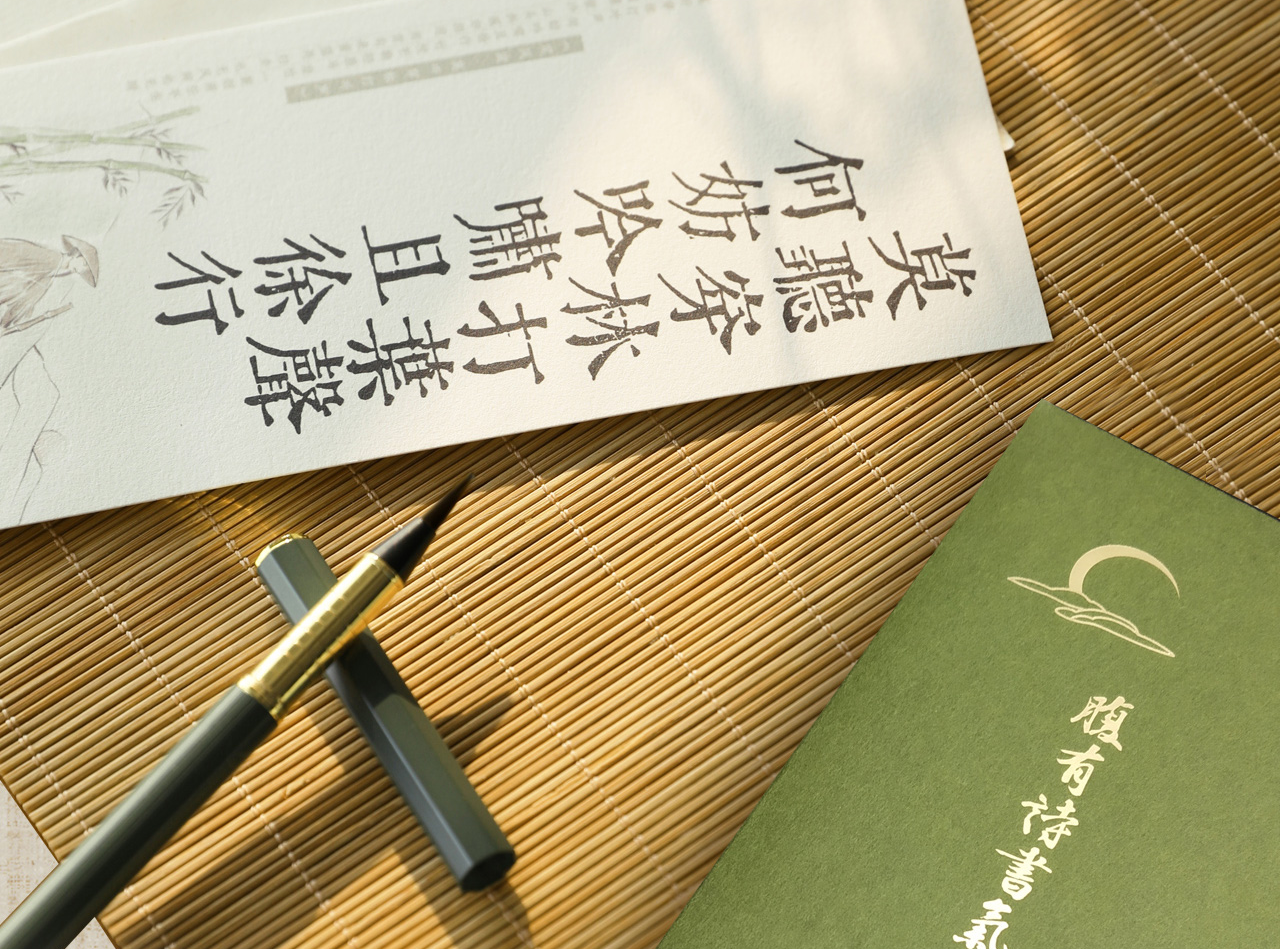 莫聽穿林打葉聲
何妨吟嘯且徐行
腹有詩書氣